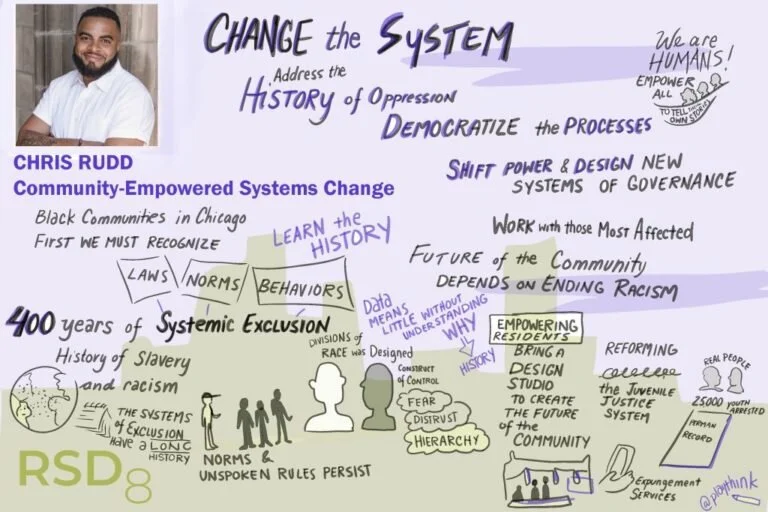 CHANGE the SYSTEM
Address the
HISTORY of OPPRESSION
DEMOCRATIZE the PROCESSES
We are
HUMANS!
EMPOWER
ALL
TO TELL THEIR
OWN STORIES
SHIFT POWER & DESIGN NEW
SYSTEMS OF GOVERNANCE
CHRIS RUDD
Community-Empowered Systems Change
Black Communities in Chicago
FIRST WE MUST RECOGNIZE
LEARN the
HISTORY
LAWS
NORMS
BEHAVIORS
WORK with those Most Affected
FUTURE of the Community
DEPENDS ON ENDING RACISM
400 years of Systemic Exclusion
History of Slavery
and racism
THE SYSTEMS
OF EXCLUSION
HAVE a LONG
HISTORY
NORMS &
UNSPOKEN RULES PERSIST
DIVISIONS of
RACE was Designed
CONSTRUCT
of CONTROL
FEAR
DISTRUST
HIERARCHY
Data
MEANS
LITTLE WITHOUT
UNDERSTANDING
WHY
HISTORY
EMPOWERING
RESIDENTS
BRING A
DESIGN
STUDIO
TO CREATE
THE FUTURE
of the
COMMUNITY
REFORMING
the JUVENILE
JUSTICE
SYSTEM
REAL PEOPLE
25,000 YOUTH
ARRESTED
PERMAN
RECORD
Expungement
Services
@playthink
RSD8